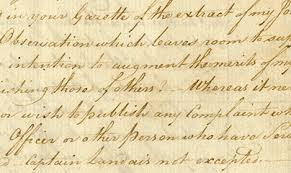 in your Gazette of the extract of my Jou
Observation which leaves room to sup
intention to augment the merits of my
ishing those of others? — Whereas it ne
or wish to publish any Complaint wh
Officer or other Person who have serv
aptain Landais not excepted. —